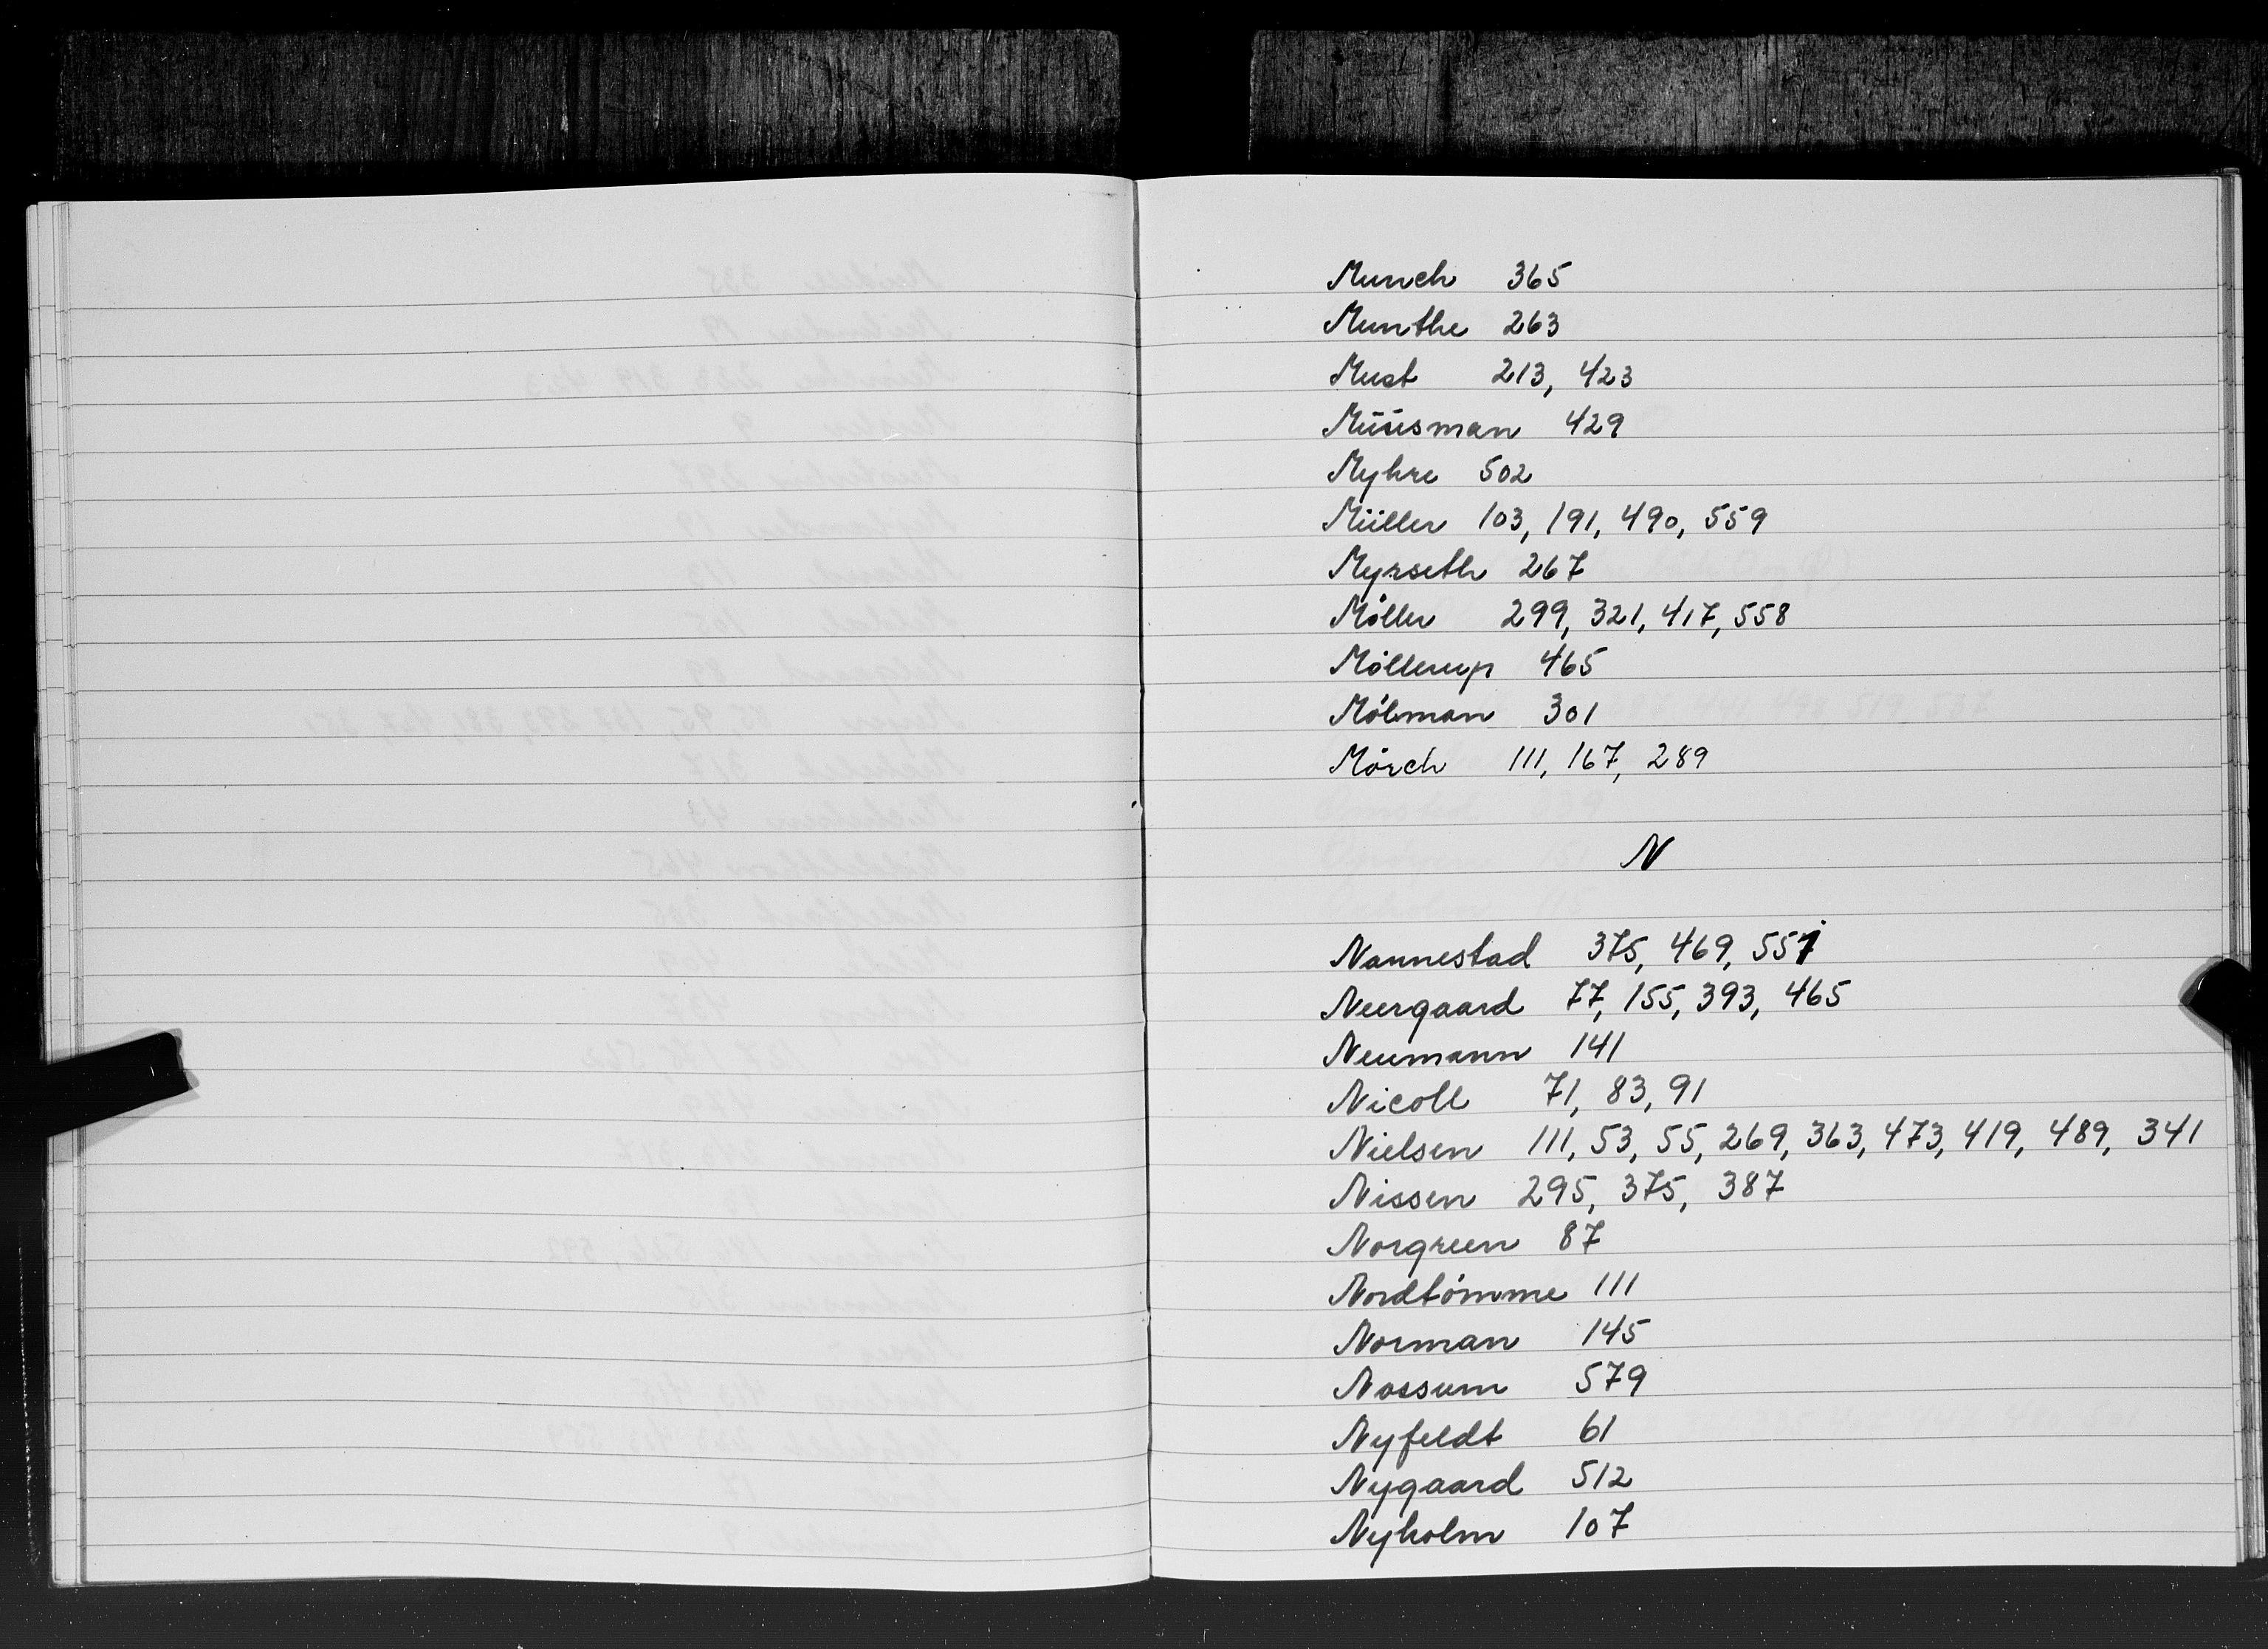 Munch 365
Munthe 263
Must 213, 423
Müüsman 429
Myhre 502
Müller 103, 191, 490, 559
Myrseth 267
Möller 299, 321, 417, 558
Möllerup 465
Mölman 301
Mörch 111, 167, 289
N
Nannestad 375, 469, 557
Neergaard 77, 155, 393, 465
Neumann 141
Nicoll 71, 83, 91
Nielsen 111, 53, 55, 269, 363, 473, 419, 489, 341
Nissen 295, 375, 387
Norgreen 87
Nordtömme 111
Norman 145
Nossum 579
Nyfeldt 61
Nygaard 512
Nyholm 107